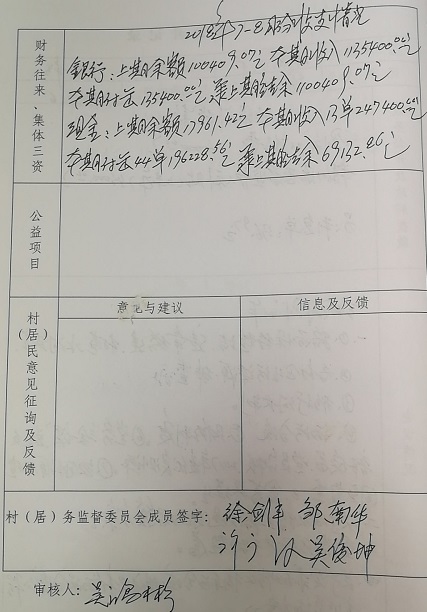 2018年7-8月份收支情况
财务往来、集体三资
银行:上期余额100409.07元 本期收入1135400.00元
本期付出1135400.00元 乘上期结余100409.07元
现金:上期余额17961.42元 本期收入13单247400.00元
本期付出44单196228.56元 乘上期结余69132.86元
公益项目
村(居)民意见征询及反馈
意见与建议
信息及反馈
村(居)务监督委员会成员签字:
徐剑丰 邹南华
许 吴俊坤
审核人:吴鸿彬